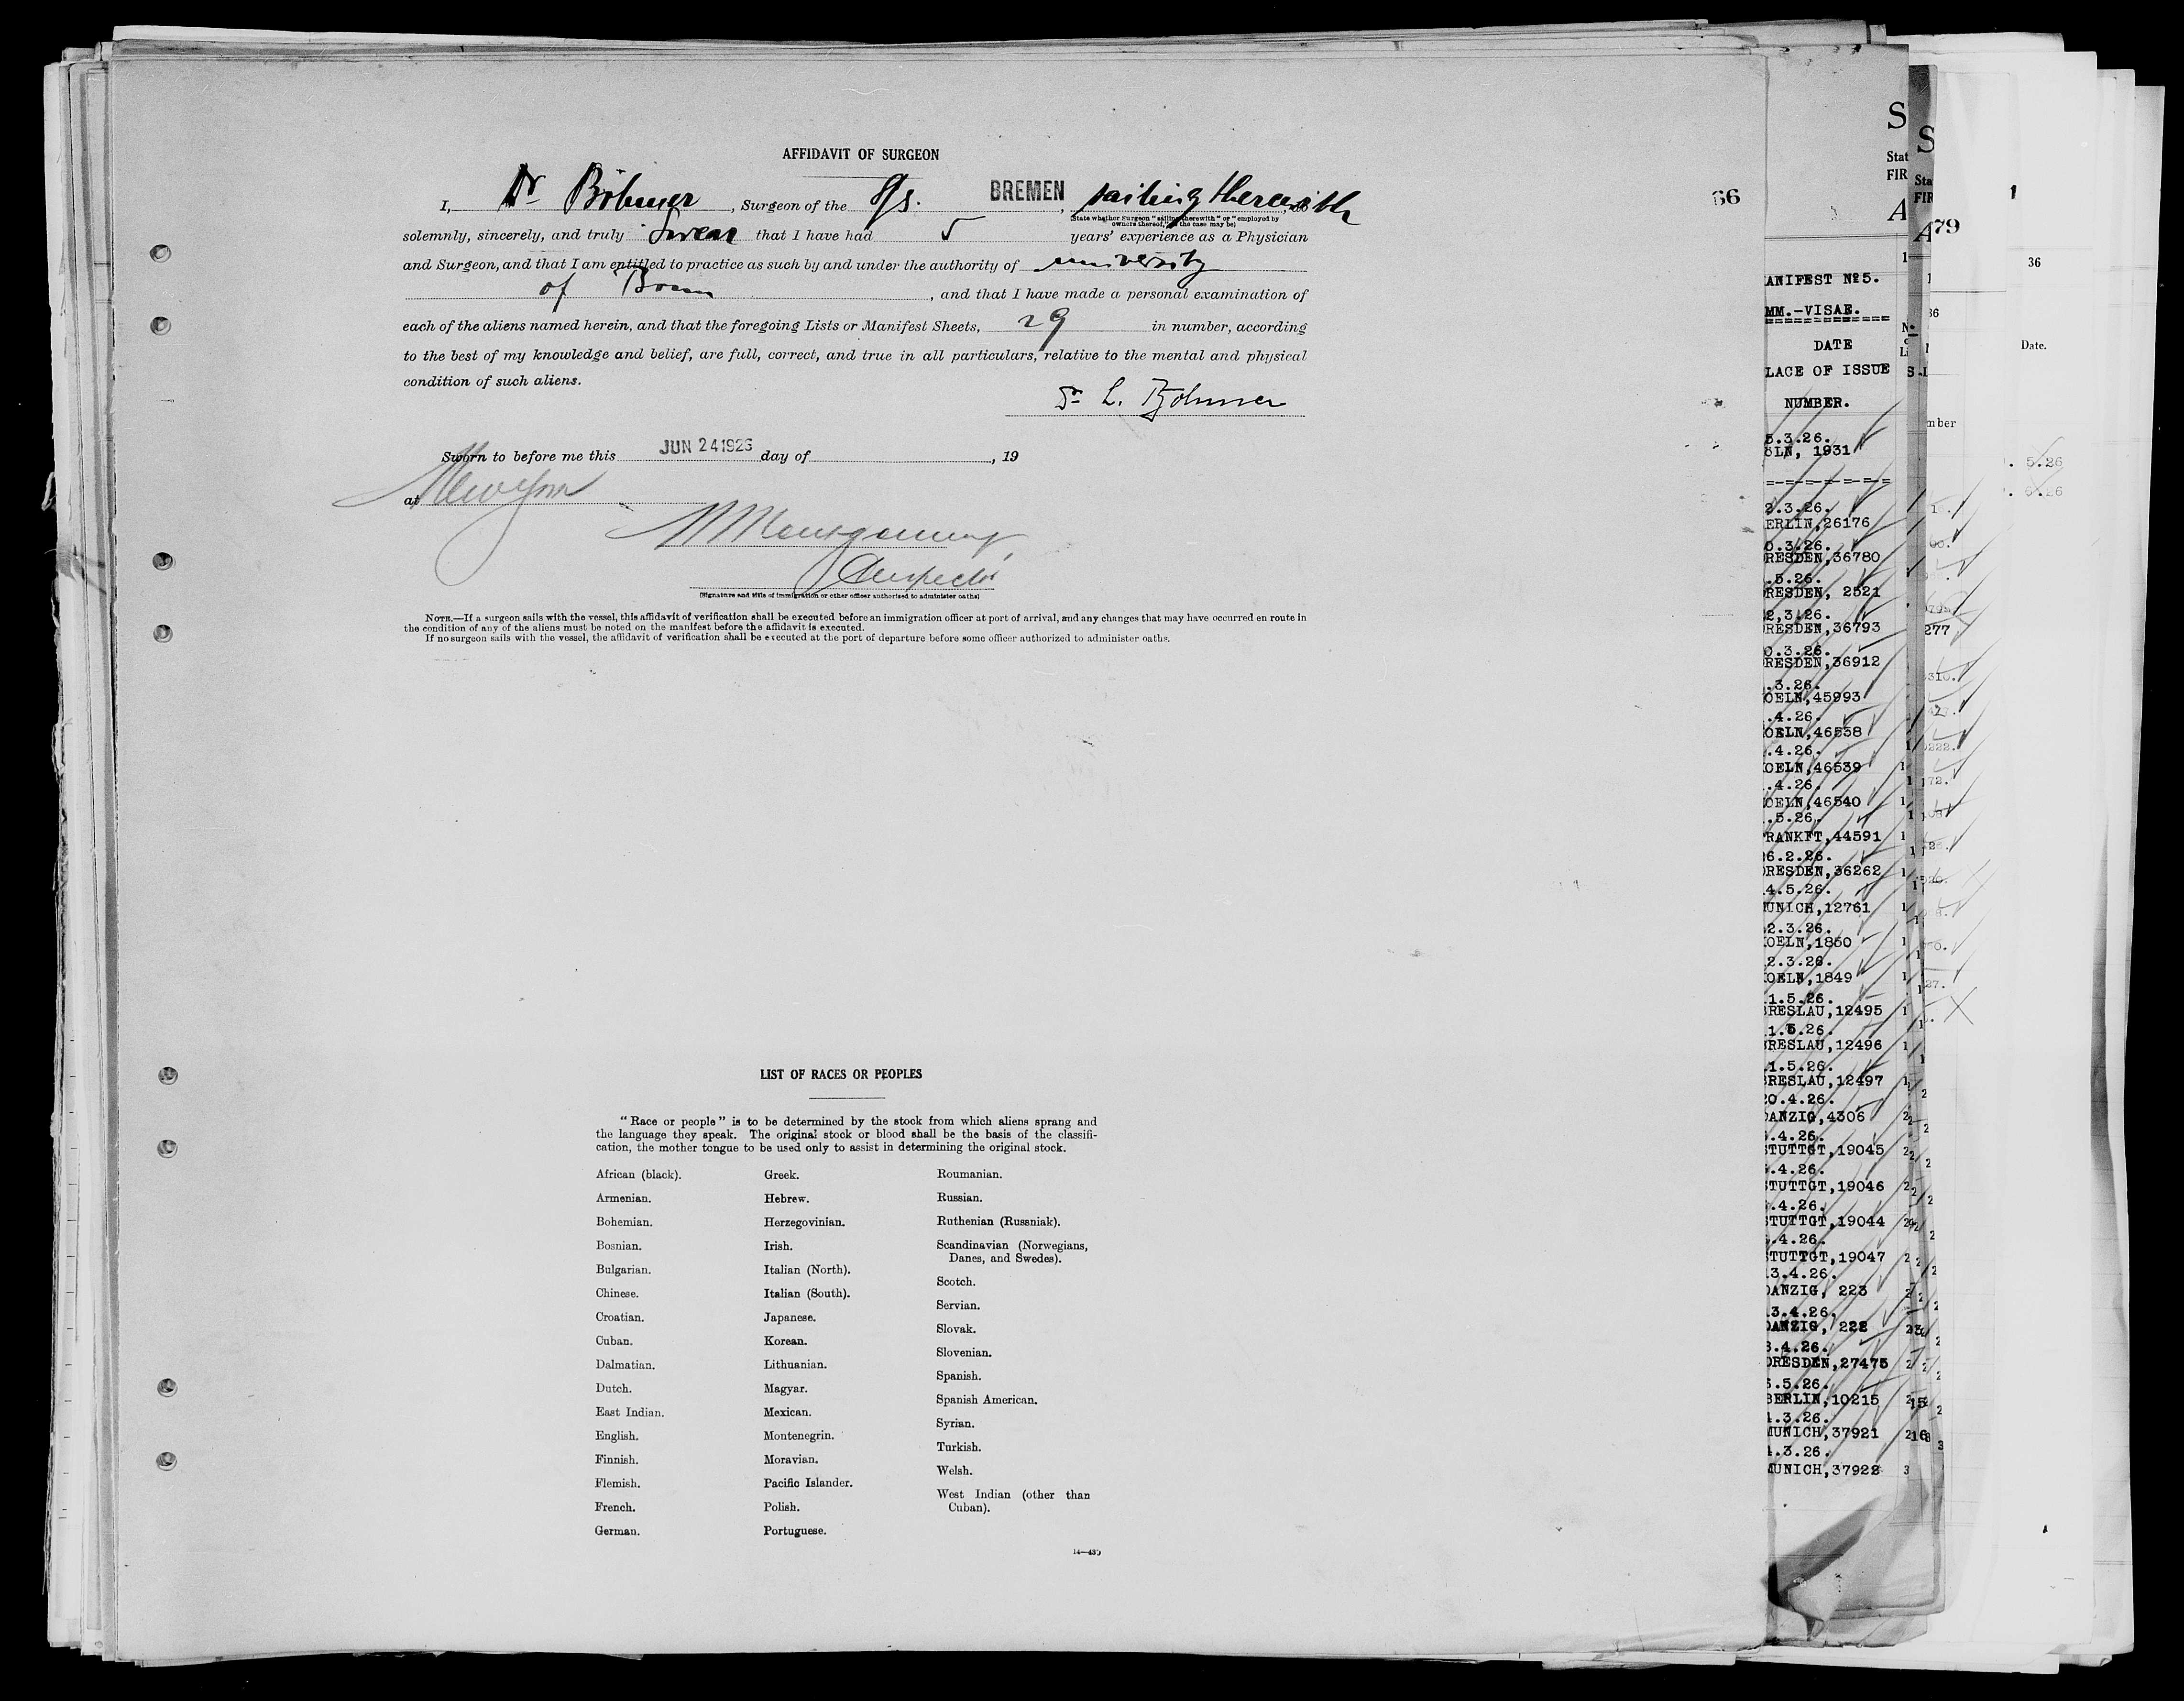 AFFIDAVIT OF SURGEON
I, Dr Böhmer, Surgeon of the S/S. BREMEN, sailing therewith, do
(State whether Surgeon "sailing therewith" or "employed by
owners thereof," as the case may be)
solemnly, sincerely, and truly swear that I have had 5 years' experience as a Physician
and Surgeon, and that I am entitled to practice as such by and under the authority of university
of Bonn, and that I have made a personal examination of
each of the aliens named herein, and that the foregoing Lists or Manifest Sheets, 29 in number, according
to the best of my knowledge and belief, are full, correct, and true in all particulars, relative to the mental and physical
condition of such aliens.
Dr L. Böhmer
Sworn to before me this JUN 24 1926 day of , 19
at New York
Montgomery
Inspector
(Signature and title of immigration or other officer authorized to administer oaths)
NOTE.—If a surgeon sails with the vessel, this affidavit of verification shall be executed before an immigration officer at port of arrival, and any changes that may have occurred en route in
the condition of any of the aliens must be noted on the manifest before the affidavit is executed.
If no surgeon sails with the vessel, the affidavit of verification shall be executed at the port of departure before some officer authorized to administer oaths.
LIST OF RACES OR PEOPLES
"Race or people" is to be determined by the stock from which aliens sprang and
the language they speak. The original stock or blood shall be the basis of the classifi-
cation, the mother tongue to be used only to assist in determining the original stock.
African (black).
Armenian.
Bohemian.
Bosnian.
Bulgarian.
Chinese.
Croatian.
Cuban.
Dalmatian.
Dutch.
East Indian.
English.
Finnish.
Flemish.
French.
German.
Greek.
Hebrew.
Herzegovinian.
Irish.
Italian (North).
Italian (South).
Japanese.
Korean.
Lithuanian.
Magyar.
Mexican.
Montenegrin.
Moravian.
Pacific Islander.
Polish.
Portuguese.
Roumanian.
Russian.
Ruthenian (Russniak).
Scandinavian (Norwegians,
Danes, and Swedes).
Scotch.
Servian.
Slovak.
Slovenian.
Spanish.
Spanish American.
Syrian.
Turkish.
Welsh.
West Indian (other than
Cuban).
14—430
66
ANIFEST №5.
MM.-VISAE.
DATE
LACE OF ISSUE
NUMBER.
5.3.26.
ÖLN, 1931
2.3.26.
ERLIN,26176
0.3.26.
RESDEN,36780
.5.26.
RESDEN, 2521
2,3.26.
RESDEN,36793
0.3.26.
RESDEN,36912
.3.26.
OELN,45993
.4.26.
OELN,46538
.4.26.
OELN,46539
.4.26.
OELN,46540
.5.26.
RANKFT,44591
6.2.26.
DRESDEN,36262
4.5.26.
UNICH,12761
2.3.26.
OELN,1850
2.3.26.
OELN,1849
1.5.26.
RESLAU,12495
1.5.26.
RESLAU,12496
1.5.26.
RESLAU,12497
20.4.26.
DANZIG,4306
.4.26.
STUTTGT,19045
.4.26.
STUTTGT,19046
.4.26.
STUTTGT,19044
.4.26.
STUTTGT,19047
3.4.26.
DANZIG, 223
3.4.26.
DANZIG, 222
.4.26.
DRESDEN,27475
.5.26.
BERLIN,10215
.3.26.
MUNICH,37921
.3.26.
MUNICH,37922
S
Stat
FIR
A
S
Sta
FIR
A
79
1
36
Date.
mber
5.26
277